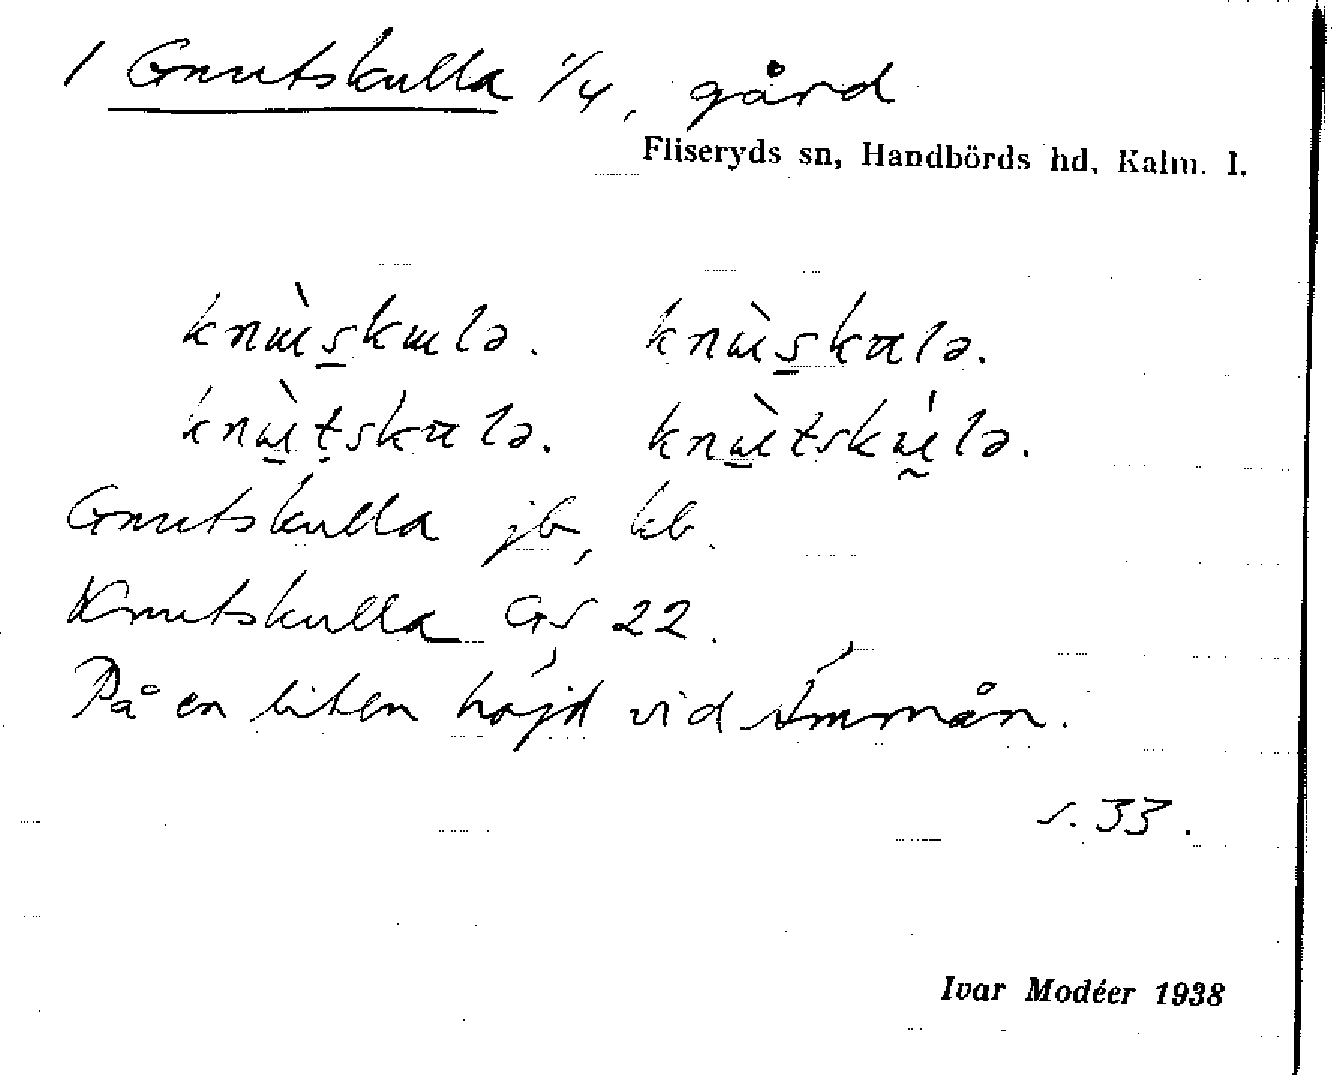 1 Gnutskulla 1/4, gård
Fliseryds sn, Handbörds hd, Kalm. l.
knɯ̀s̠kɯlə. knɯ̀s̠kαlə.
knɯ̠̀tskαlə. knɯ̠̀tskɯ̰́lə.
Gnutskulla jb, kb.
Knutskulla GS 22.
På en liten höjd vid Åmmån.
s. 33.
Ivar Modéer 1938